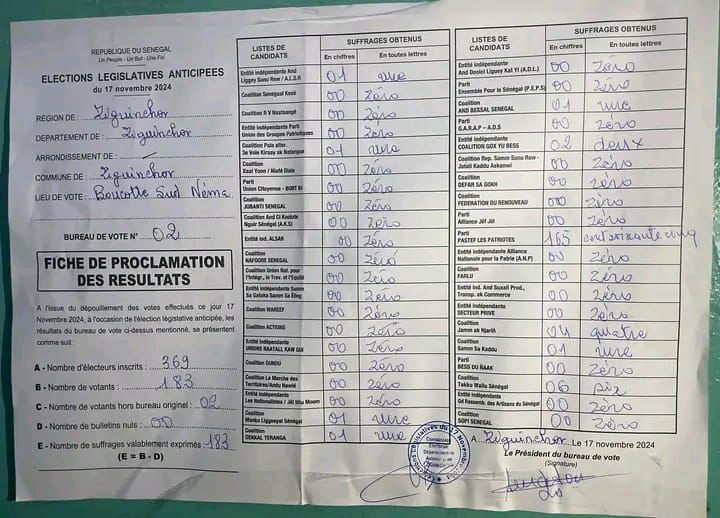 REPUBLIQUE DU SENEGAL
Un Peuple - Un But - Une Foi
ELECTIONS LEGISLATIVES ANTICIPEES
du 17 novembre 2024
RÉGION DE : Ziguinchor
DEPARTEMENT DE : Ziguinchor
ARRONDISSEMENT DE : —
COMMUNE DE : Ziguinchor
LIEU DE VOTE : Boucotte Sud Néma
BUREAU DE VOTE N° 02
FICHE DE PROCLAMATION
DES RESULTATS
A l'issue du dépouillement des votes effectués ce jour 17
Novembre 2024, à l'occasion de l'élection législative anticipée, les
résultats du bureau de vote ci-dessus mentionné, se présentent
comme suit :
A - Nombre d'électeurs inscrits : 369
B - Nombre de votants : 183
C - Nombre de votants hors bureau originel : 02
D - Nombre de bulletins nuls : 00
E - Nombre de suffrages valablement exprimés : 183
(E = B - D)
LISTES DE CANDIDATS SUFFRAGES OBTENUS
En chiffres En toutes lettres
Entité indépendante And Liggey Sunu Rew / A.L.S.R 01 une
Coalition Senegaal Kesé 00 zéro
Coalition R V Naataangé 00 zéro
Entité indépendante Parti Union des Groupes Patriotiques 00 zéro
Coalition Pole alter. 3e Voie Kiraay ak Natangue 01 une
Coalition Xaal Yoon / Malé Diale 00 zéro
Parti Union Citoyenne - BUNT BI 00 zéro
Coalition JUBANTI SENEGAL 00 zéro
Coalition And Ci Koolute Nguir Sénégal (A.K.S) 00 zéro
Entité ind. ALSAR 00 zéro
Coalition NAFOORE SENEGAL 00 zéro
Coalition Union Nat. pour l'Intégr., le Trav. et l'Equité 00 zéro
Entité indépendante Samm Sa Gafaka Samm Sa Elleg 00 zéro
Coalition WAREEF 00 zéro
Coalition ACTIONS 00 zéro
Entité indépendante UNIONS NAATALL KAW GUI 00 zéro
Coalition DUNDU 00 zéro
Coalition La Marche des Territoires/Andu Nawlé 00 zéro
Entité indépendante Les Nationalistes / Jël Nhu Moom 00 zéro
Coalition Manko Liggueyal Sénégal 01 une
Coalition DEKKAL TERANGA 01 une
LISTES DE CANDIDATS SUFFRAGES OBTENUS
En chiffres En toutes lettres
Entité indépendante And Doolel Liguey Kat Yi (A.D.L.) 00 zéro
Parti Ensemble Pour le Sénégal (P.E.P.S) 00 zéro
Coalition AND BESSAL SENEGAL 01 une
Parti G.A.R.A.P – A.D.S 00 zéro
Entité indépendante COALITION GOX YU BESS 02 deux
Coalition Rep. Samm Sunu Rew - Jotali Kaddu Askanwi 00 zéro
Coalition DEFAR SA GOKH 00 zéro
Coalition FEDERATION DU RENOUVEAU 00 zéro
Parti Alliance Jëf Jël 00 zéro
Parti PASTEF LES PATRIOTES 165 cent soixante cinq
Entité indépendante Alliance Nationale pour la Patrie (A.N.P) 00 zéro
Coalition FARLU 00 zéro
Entité ind. And Suxali Prod., Transp. ak Commerce 00 zéro
Entité indépendante SECTEUR PRIVE 00 zéro
Coalition Jamm ak Njariñ 04 quatre
Coalition Samm Sa Kaddu 01 une
Parti BESS DU ÑAAK 00 zéro
Coalition Takku Wallu Sénégal 06 six
Entité indépendante Gd Rassemb. des Artisans du Sénégal 00 zéro
Coalition SOPI SENEGAL 00 zéro
A Ziguinchor Le 17 novembre 2024
Le Président du bureau de vote
(Signature)